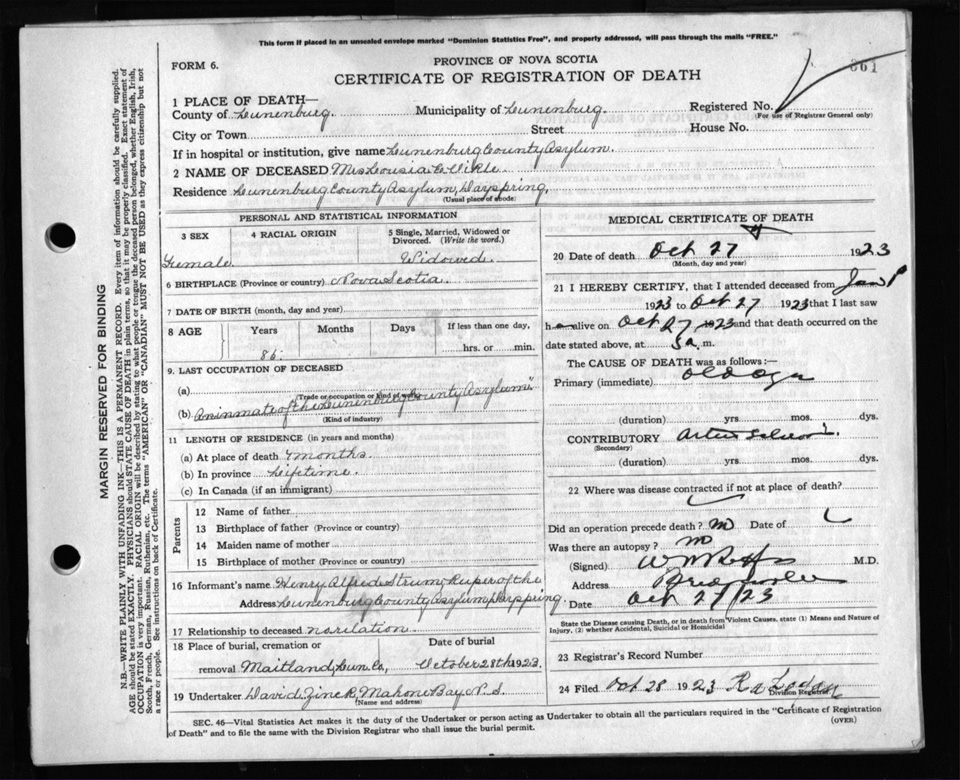 This form if placed in an unsealed envelope marked "Dominion Statistics Free", and properly addressed, will pass through the mails "FREE."
FORM 6.
PROVINCE OF NOVA SCOTIA
CERTIFICATE OF REGISTRATION OF DEATH
1 PLACE OF DEATH—
County of Lunenburg. Municipality of Lunenburg. Registered No.
(For use of Registrar General only)
City or Town Street House No.
If in hospital or institution, give name Lunenburg County Asylum.
2 NAME OF DECEASED Mrs Lousia
Residence Lunenburg County Asylum, Dayspring,
(Usual place of abode)
PERSONAL AND STATISTICAL INFORMATION
3 SEX 4 RACIAL ORIGIN 5 Single, Married, Widowed or Divorced. (Write the word.)
Female. Widowed.
6 BIRTHPLACE (Province or country) Nova Scotia.
7 DATE OF BIRTH (month, day and year)
8 AGE Years Months Days If less than one day,
86. hrs. or min.
9. LAST OCCUPATION OF DECEASED
(a)
(Trade or occupation or kind of work)
(b) An inmate of the Lunenburg County Asylum.
(Kind of industry)
11 LENGTH OF RESIDENCE (in years and months)
(a) At place of death 7 months.
(b) In province Lifetime.
(c) In Canada (if an immigrant)
Parents
12 Name of father
13 Birthplace of father (Province or country)
14 Maiden name of mother
15 Birthplace of mother (Province or country)
16 Informant's name Henry Alfred Strum, Keeper of the
Address Lunenburg County Asylum, Dayspring.
17 Relationship to deceased no rilation
18 Place of burial, cremation or Date of burial
removal Maitland, Lun. Co, October 28th 1923.
19 Undertaker David Zinck, Mahone Bay, N.S.
(Name and address)
MEDICAL CERTIFICATE OF DEATH
20 Date of death Oct 27 1923
(Month, day and year)
21 I HEREBY CERTIFY, that I attended deceased from Jan 1
1923 to Oct 27 1923 that I last saw
h alive on Oct 27 1923 and that death occurred on
date stated above, at 5 a. m.
The CAUSE OF DEATH was as follows:—
Primary (immediate) old age
(duration) yrs. mos. dys.
CONTRIBUTORY
(Secondary)
(duration) yrs. mos. dys.
22 Where was disease contracted if not at place of death?
Did an operation precede death? no Date of
Was there an autopsy? no
(Signed) M.D.
Address
Date Oct 27/23
State the Disease causing Death, or in death from Violent Causes, state (1) Means and Nature of
Injury, (2) whether Accidental, Suicidal or Homicidal
23 Registrar's Record Number
24 Filed Oct 28 1923
Division Registrar
SEC. 46—Vital Statistics Act makes it the duty of the Undertaker or person acting as Undertaker to obtain all the particulars required in the "Certificate of Registration
of Death" and to file the same with the Division Registrar who shall issue the burial permit. (OVER)
MARGIN RESERVED FOR BINDING
N.B.—WRITE PLAINLY WITH UNFADING INK—THIS IS A PERMANENT RECORD. Every item of information should be carefully supplied.
AGE should be stated EXACTLY. PHYSICIANS should STATE CAUSE OF DEATH in plain terms, so that it may be properly classified. Exact statement of
OCCUPATION is very important. RACIAL ORIGIN will be described by stating to what people or tongue the deceased person belonged, whether English, Irish,
Scotch, French, German, Russian, Ruthenian, etc. The terms "AMERICAN" or "CANADIAN" MUST NOT BE USED as they express citizenship but not
a race or people. See instructions on back of Certificate.